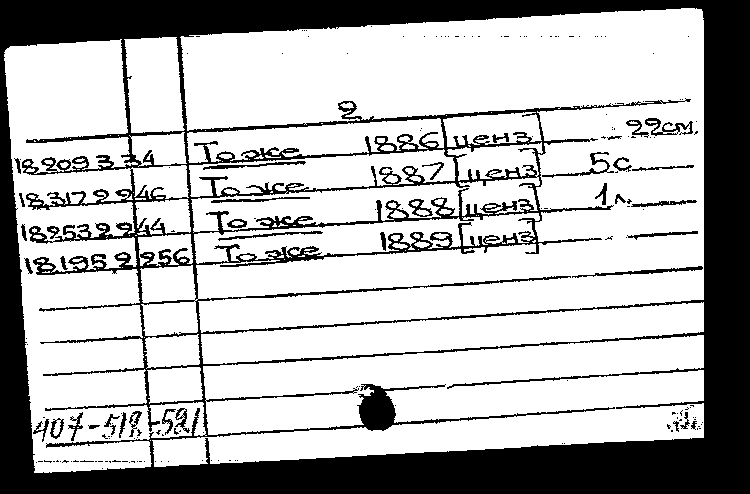 2
18.209.3.34 То же 1886 [ценз] 22см.
18.317.2.246 То же 1887 [ценз] 5с
18.253.2.244 То же 1888 [ценз] 1л.
18.195.2.256 То же 1889 [ценз]
407-518-521